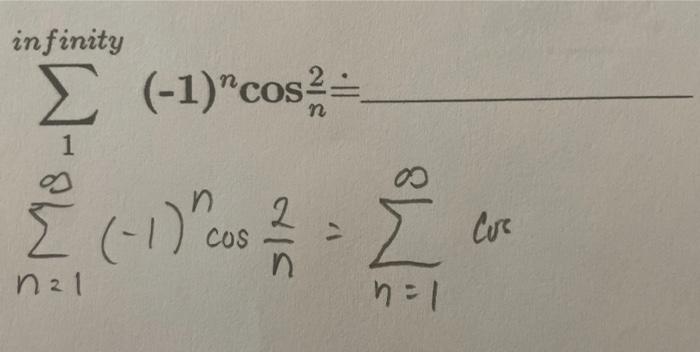 infinity
∑ (-1)ⁿcos 2/n ≐ ____________
1
∞ ∞
∑ (-1)ⁿ cos 2/n = ∑
n=1 n=1